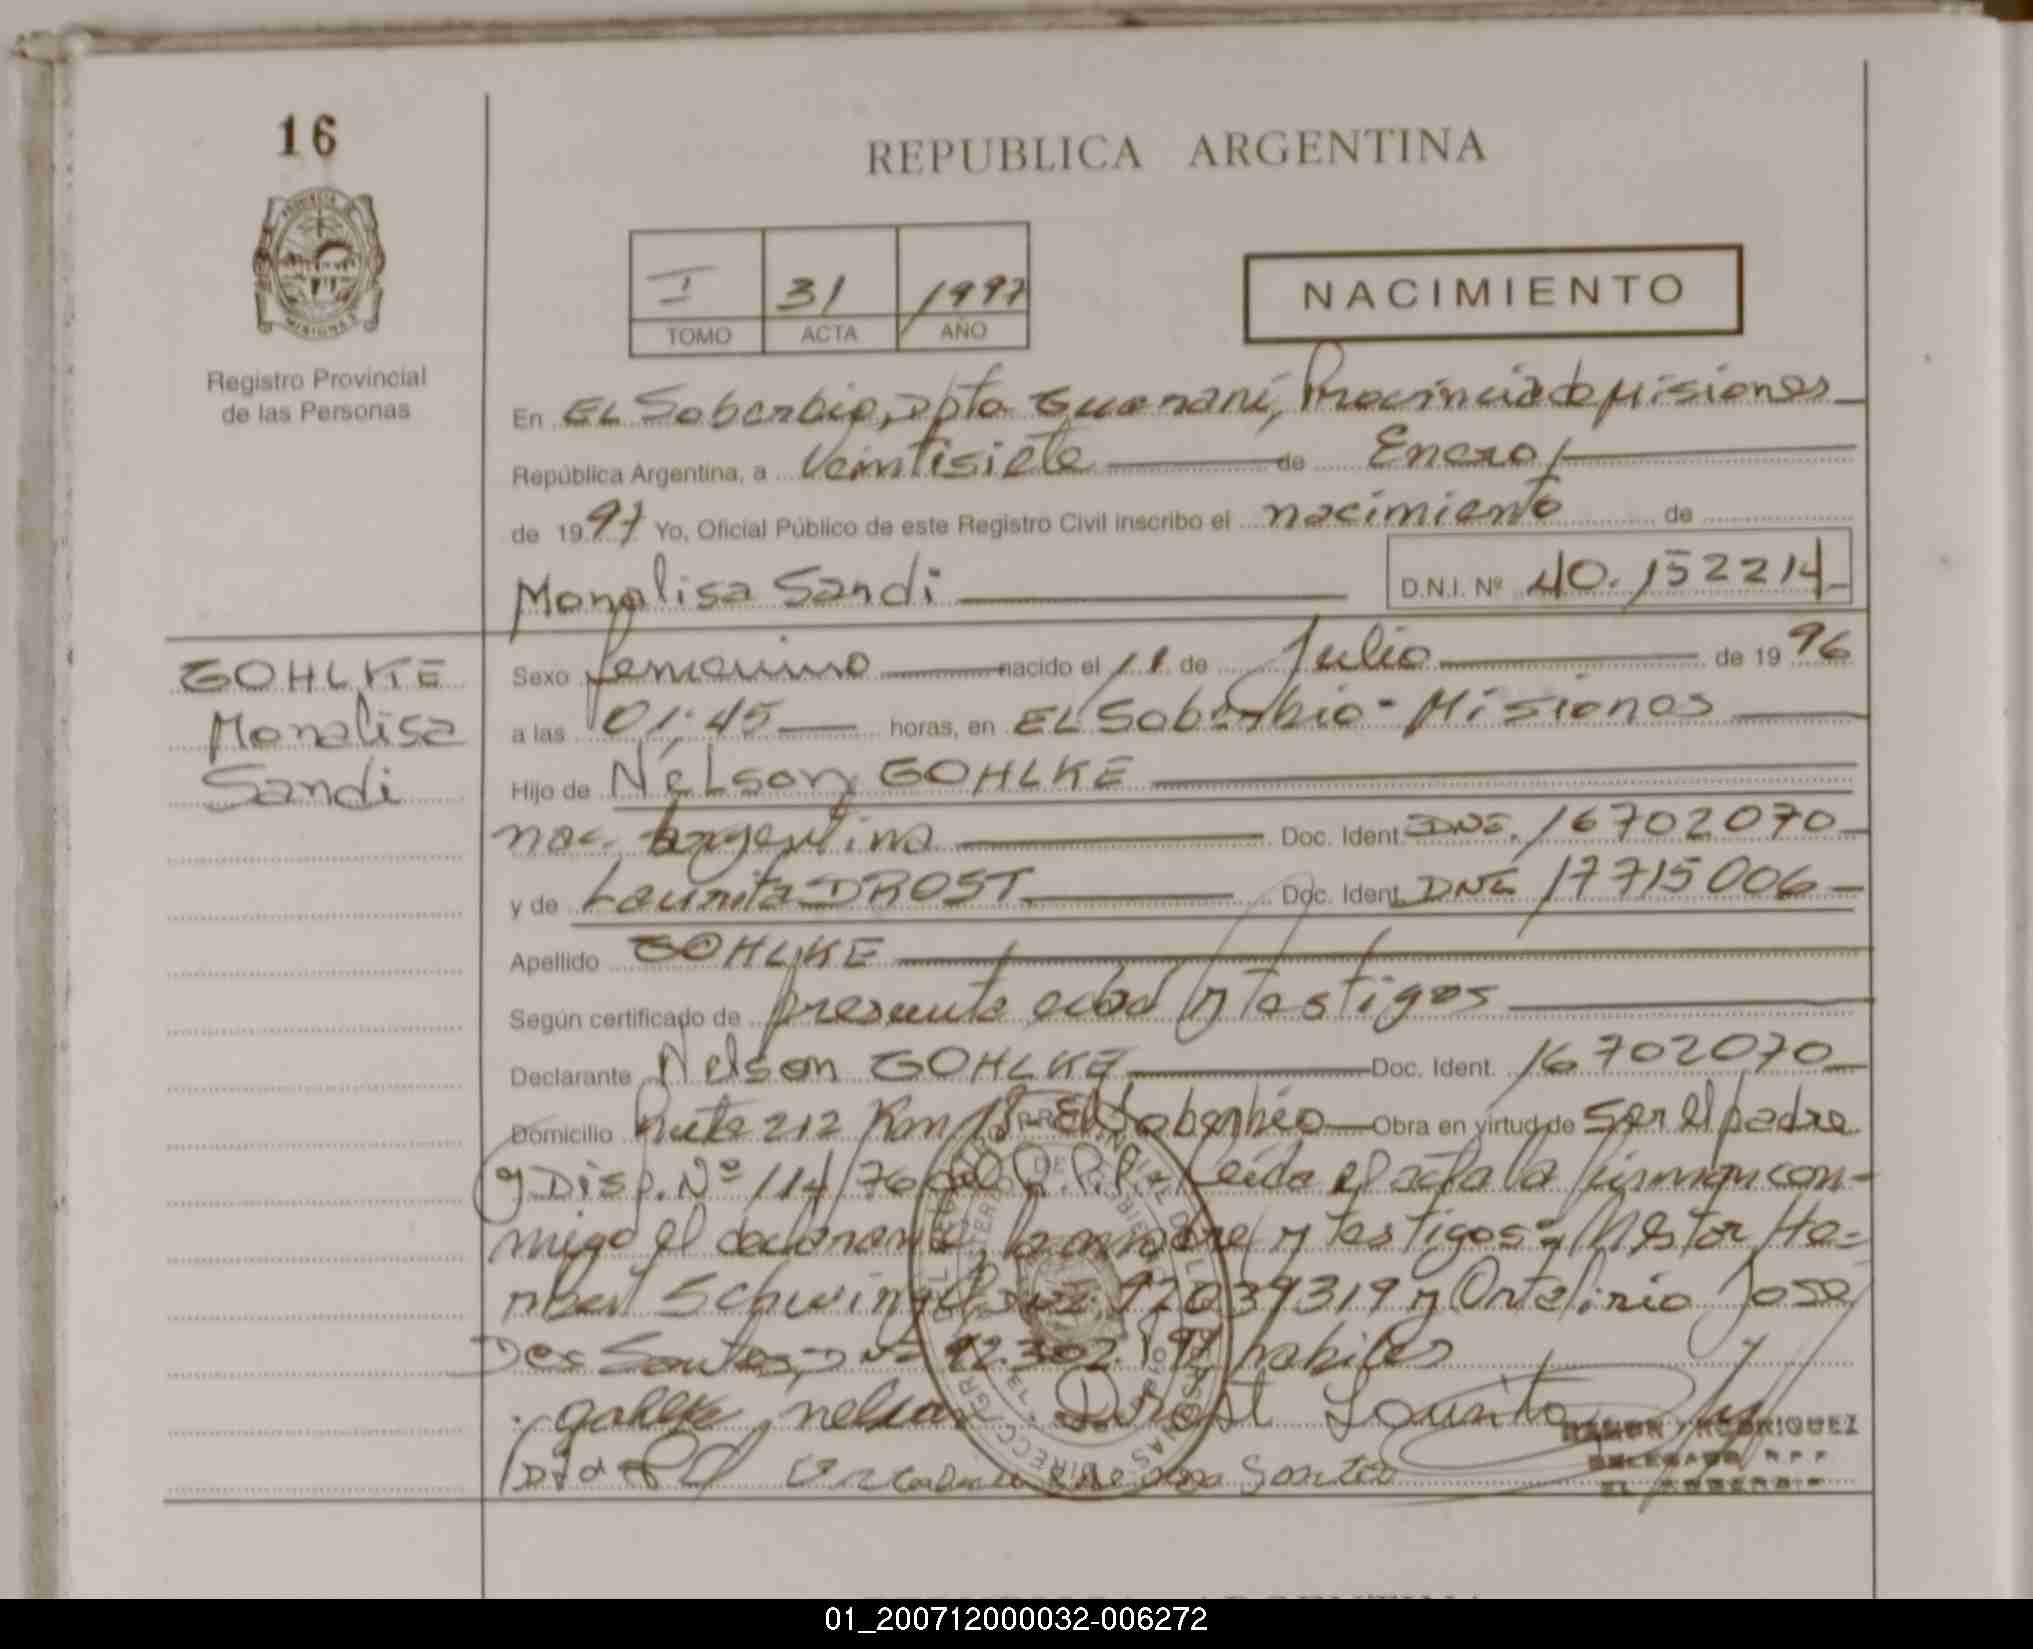 16
REPUBLICA ARGENTINA
I 31 1997
TOMO ACTA AÑO
NACIMIENTO
Registro Provincial
de las Personas
En EL Soberbio, Dpto Guaraní, Provincia de Misiones
República Argentina, a Veintisiete de Enero
de 1997 Yo, Oficial Público de este Registro Civil inscribo el nacimiento de
Monalisa Sandi D.N.I. Nº 40.152214
GOHLKE
Monalisa
Sandi
Sexo femenino nacido el 11 de Julio de 1996
a las 01:45 horas, en EL Soberbio - Misiones
Hijo de Nélson GOHLKE
nac. argentina Doc. Ident. DNI. 16702070
y de Laurita DROST Doc. Ident. DNI 17715006
Apellido GOHLKE
Según certificado de presunta edad y testigos
Declarante Nelson GOHLKE Doc. Ident. 16702070
Domicilio Ruta 212 Km 18 El Soberbio Obra en virtud de Ser el padre
y Disp. Nº 114/76 del R.P.P. Leída el acta la firman con-
migo el declarante, la madre y testigos: Néstor He-
riber Schwingel DNI 92039319 y Ortelirio José
Dos Santos, DNI 92.302.197 habiles
gohlke nelson Drost Lourita
Santos
RAMON RODRIGUEZ
DELEGADO R P P
EL SOBERBIO
01_200712000032-006272